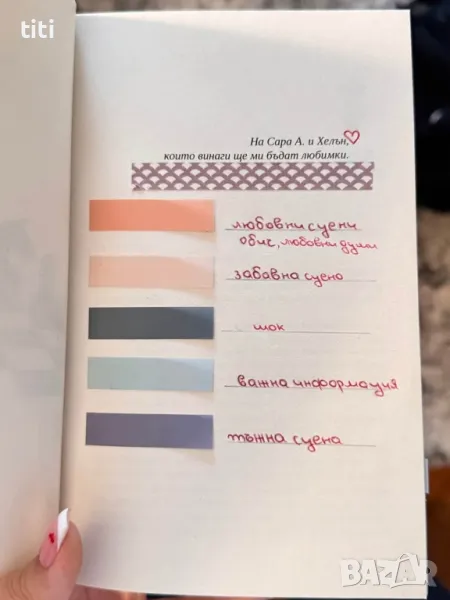 titi
На Сара А. и Хелън,
които винаги ще ми бъдат любимки.
любовни сцени
обич, любовни думи
забавна сцена
шок
важна информация
тъжна сцена
BAZAR